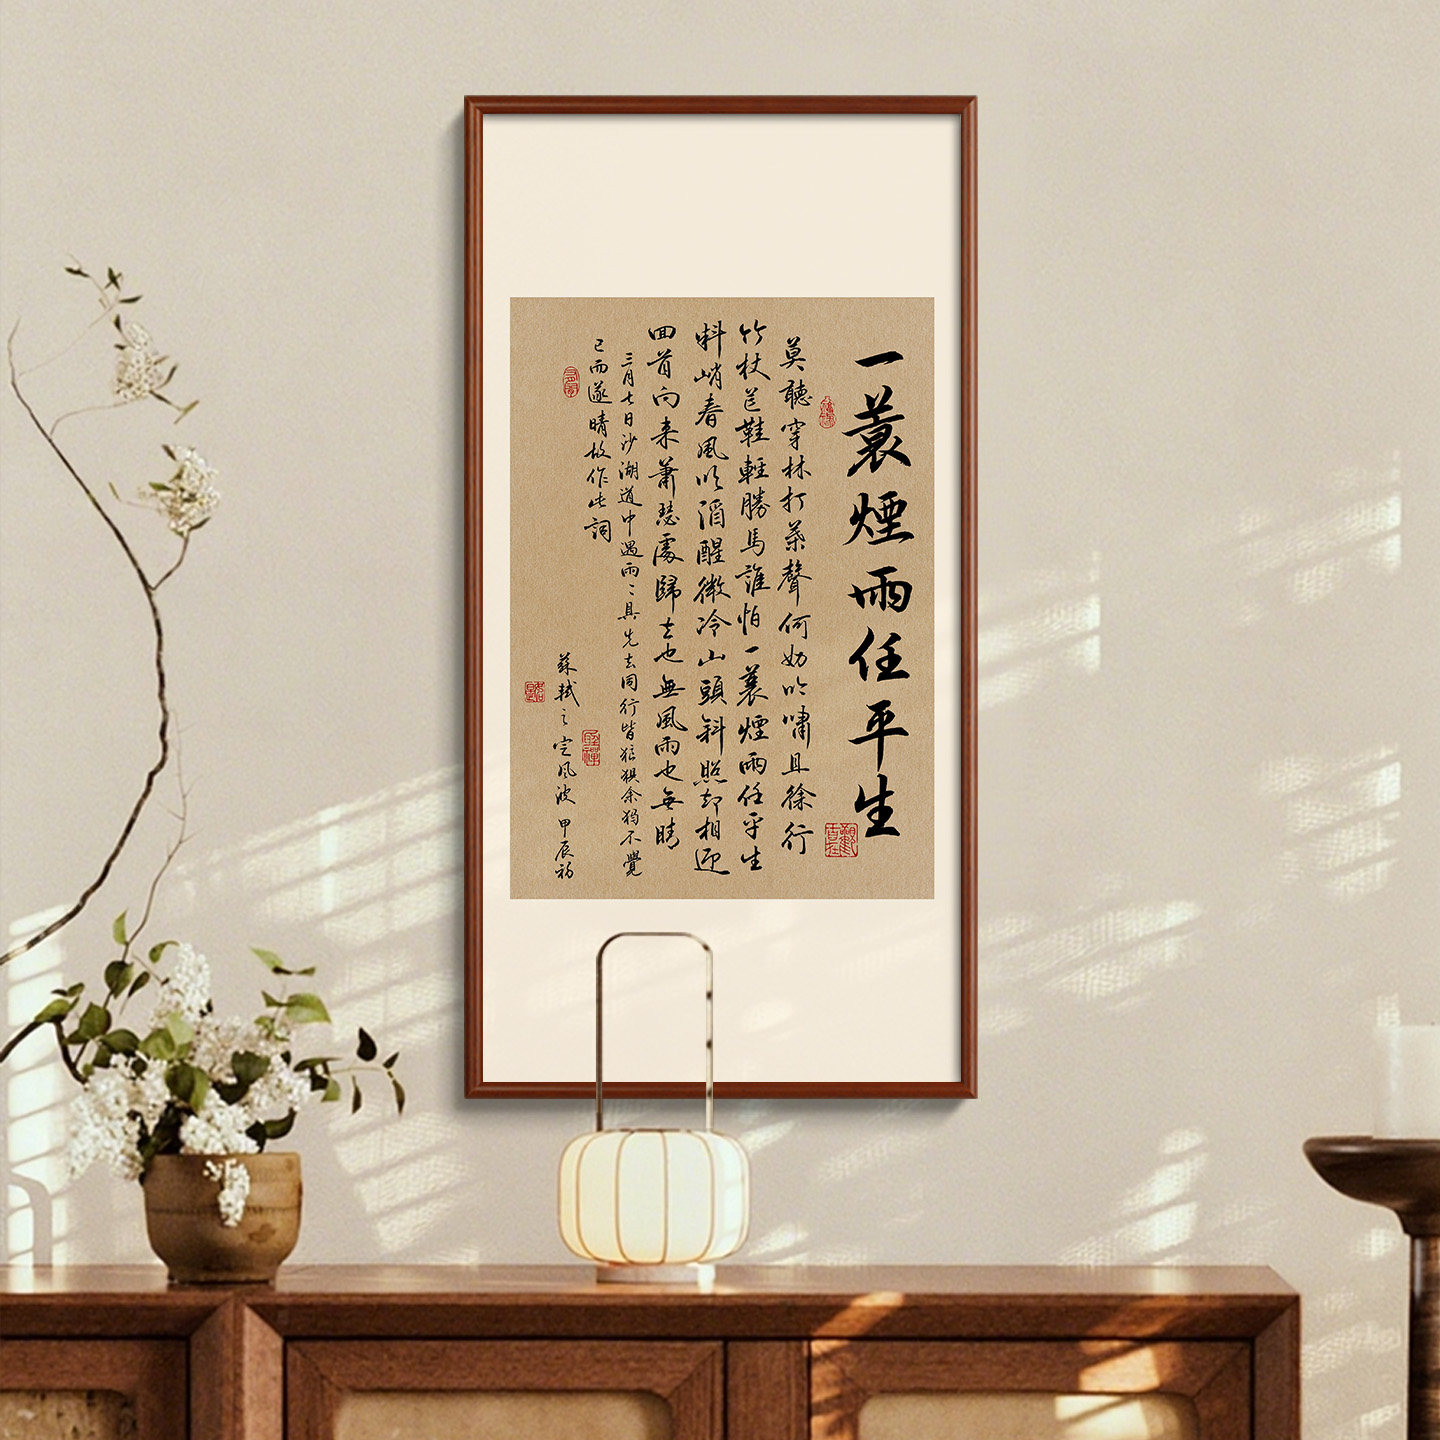 一蓑煙雨任平生
莫聽穿林打葉聲何妨吟嘯且徐行
竹杖芒鞋輕勝馬誰怕一蓑煙雨任平生
料峭春風吹酒醒微冷山頭斜照却相迎
回首向来蕭瑟處歸去也無風雨也無晴
三月七日沙湖道中遇雨〻具先去同行皆狼狽余獨不覺
已而遂晴故作此詞
蘇軾之定風波 甲辰初